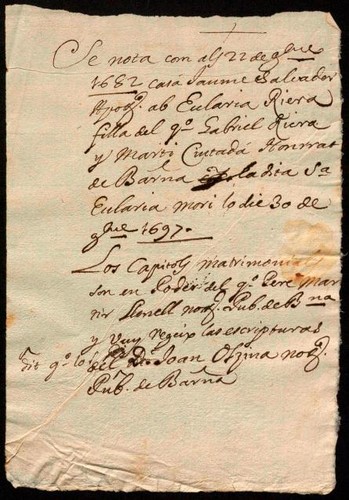 Se nota com als 22 de 9bre
1682 casá Jaume Salvador
Apotᵍ. ab Eularia Riera
filla del qº Gabriel Riera
y Marti Ciutadá Honrrat
de Barna la dita Sa
Eularia mori lo die 30 de
9bre 1697.
Los Capitols matrimonials
son en Poder del qº Pere Mar
tir Llunell notᵍ. Pub. de Bna
y vuy regeix las escripturas
dit qº lo del Dr. Joan Olzina notᵍ.
Pub. de Barna